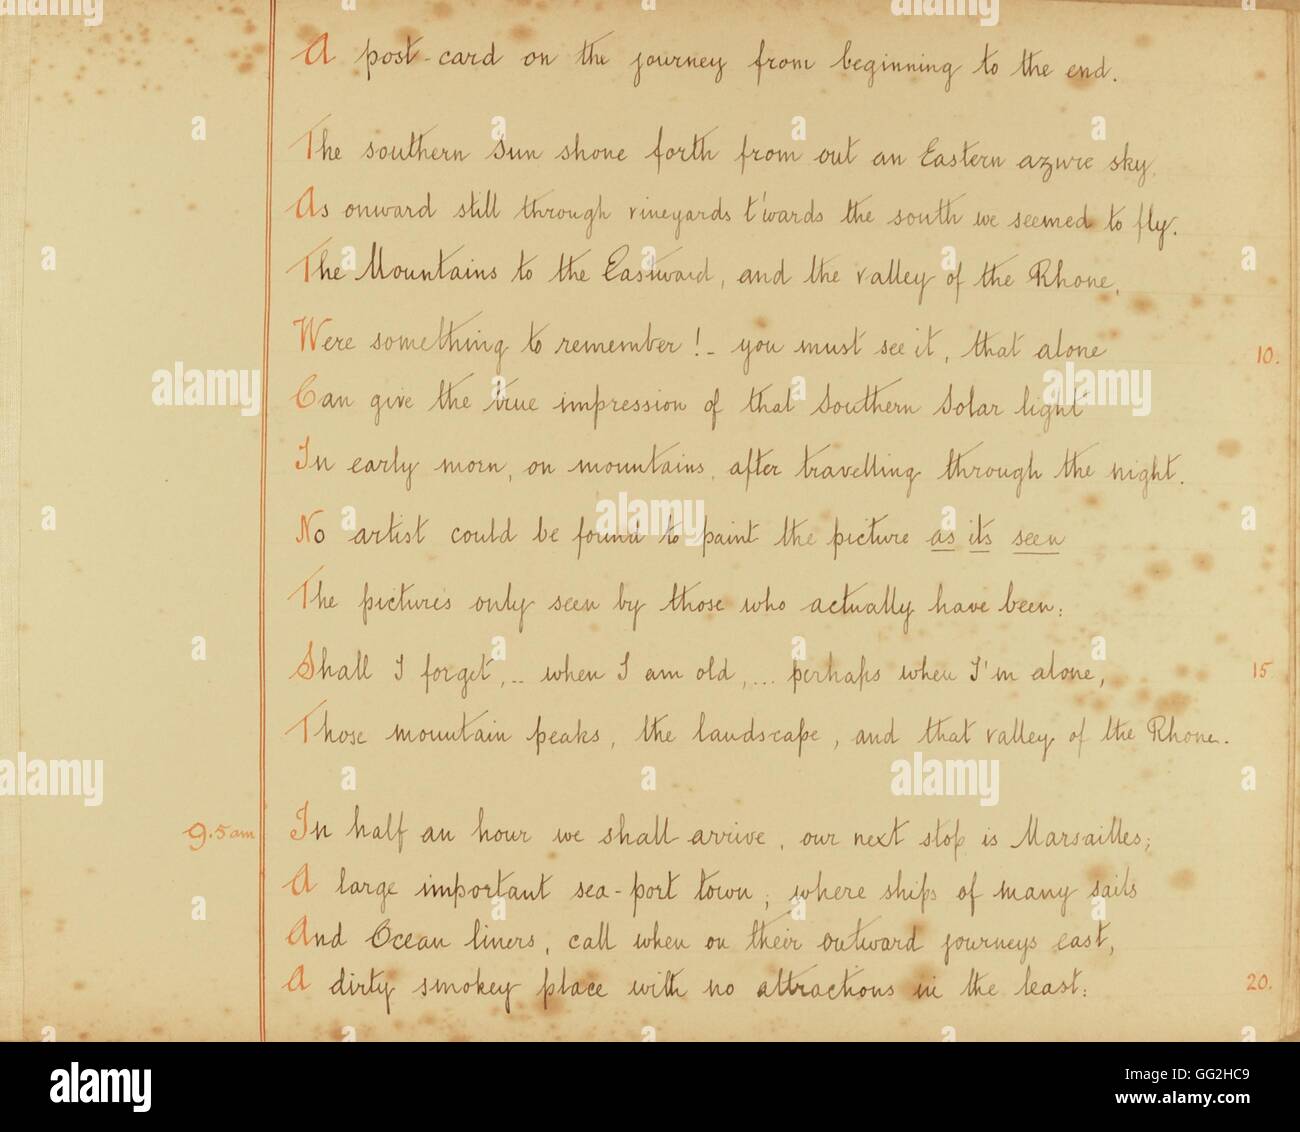 A post-card on the journey from beginning to the end.
The southern Sun shone forth from out an Eastern azure sky,
As onward still through vineyards t'wards the south we seemed to fly.
The Mountains to the Eastward, and the valley of the Rhone,
Were something to remember!- you must see it, that alone 10.
Can give the true impression of that Southern Solar light
In early morn, on mountains, after travelling through the night.
No artist could be found to paint the picture as its seen
The pictures only seen by those who actually have been:
Shall I forget, .. when I am old, ... perhaps when I'm alone, 15
Those mountain peaks, the landscape, and that valley of the Rhone.
9.5am In half an hour we shall arrive, our next stop is Marsailles;
A large important sea-port town; where ships of many sails
And Ocean liners, call when on their outward journeys east,
A dirty smokey place with no attractions in the least: 20.
alamy
a
alamy
Image ID: GG2HC9
www.alamy.com